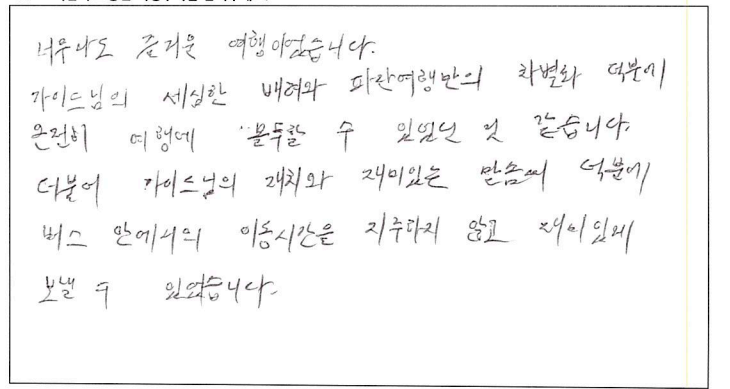 너무나도 즐거운 여행이었습니다.
가이드님의 세심한 배려와 파란여행만의 차별화 덕분에
온전히 여행에 몰두할 수 있었던 것 같습니다.
더불어 가이드님의 재치와 재미있는 말솜씨 덕분에
버스 안에서의 이동시간을 지루하지 않고 재미있게
보낼 수 있었습니다.